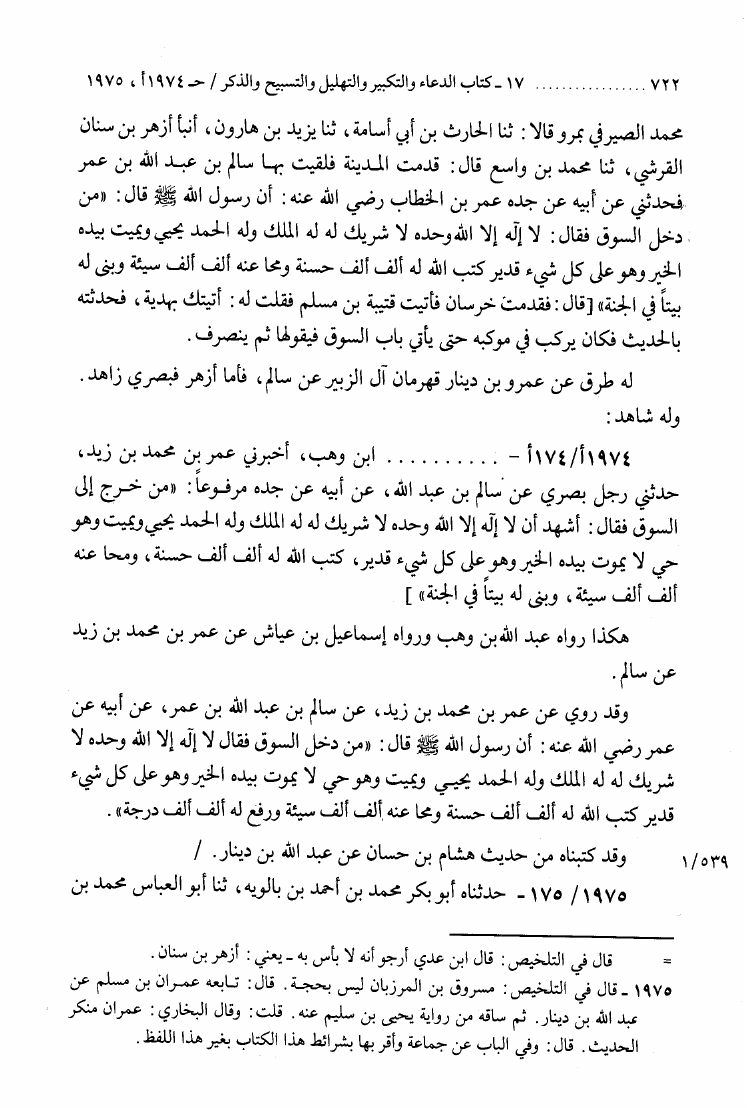 ٧٢٢ ................. ١٧ - كتاب الدعاء والتكبير والتهليل والتسبيح والذكر / حـ ١٩٧٤أ ، ١٩٧٥
محمد الصيرفي بمرو قالا : ثنا الحارث بن أبي أسامة ، ثنا يزيد بن هارون ، أنبأ أزهر بن سنان
القرشي ، ثنا محمد بن واسع قال : قدمت المدينة فلقيت بها سالم بن عبد الله بن عمر
فحدثني عن أبيه عن جده عمر بن الخطاب رضي الله عنه : أن رسول الله ﷺ قال : «من
دخل السوق فقال : لا إله إلا الله وحده لا شريك له له الملك وله الحمد يحيي ويميت بيده
الخير وهو على كل شيء قدير كتب الله له ألف ألف حسنة ومحا عنه ألف ألف سيئة وبنى له
بيتاً في الجنة» [قال : فقدمت خرسان فأتيت قتيبة بن مسلم فقلت له : أتيتك بهدية ، فحدثته
بالحديث فكان يركب في موكبه حتى يأتي باب السوق فيقولها ثم ينصرف .
له طرق عن عمرو بن دينار قهرمان آل الزبير عن سالم ، فأما أزهر فبصري زاهد .
وله شاهد :
١٩٧٤أ/١٧٤أ - .......... ابن وهب ، أخبرني عمر بن محمد بن زيد ،
حدثني رجل بصري عن سالم بن عبد الله ، عن أبيه عن جده مرفوعاً : «من خرج إلى
السوق فقال : أشهد أن لا إله إلا الله وحده لا شريك له له الملك وله الحمد يحيي ويميت وهو
حي لا يموت بيده الخير وهو على كل شيء قدير ، كتب الله له ألف ألف حسنة ، ومحا عنه
ألف ألف سيئة ، وبنى له بيتاً في الجنة» ]
هكذا رواه عبد الله بن وهب ورواه إسماعيل بن عياش عن عمر بن محمد بن زيد
عن سالم .
وقد روي عن عمر بن محمد بن زيد ، عن سالم بن عبد الله بن عمر ، عن أبيه عن
عمر رضي الله عنه : أن رسول الله ﷺ قال : «من دخل السوق فقال لا إله إلا الله وحده لا
شريك له له الملك وله الحمد يحيي ويميت وهو حي لا يموت بيده الخير وهو على كل شيء
قدير كتب الله له ألف ألف حسنة ومحا عنه ألف ألف سيئة ورفع له ألف ألف درجة» .
وقد كتبناه من حديث هشام بن حسان عن عبد الله بن دينار . / ١/٥٣٩
١٩٧٥/ ١٧٥ - حدثناه أبو بكر محمد بن أحمد بن بالويه ، ثنا أبو العباس محمد بن
= قال في التلخيص : قال ابن عدي أرجو أنه لا بأس به - يعني : أزهر بن سنان .
١٩٧٥ - قال في التلخيص : مسروق بن المرزبان ليس بحجة . قال : تابعه عمران بن مسلم عن
عبد الله بن دينار . ثم ساقه من رواية يحيى بن سليم عنه . قلت : وقال البخاري : عمران منكر
الحديث . قال : وفي الباب عن جماعة وأقر بها بشرائط هذا الكتاب بغير هذا اللفظ .